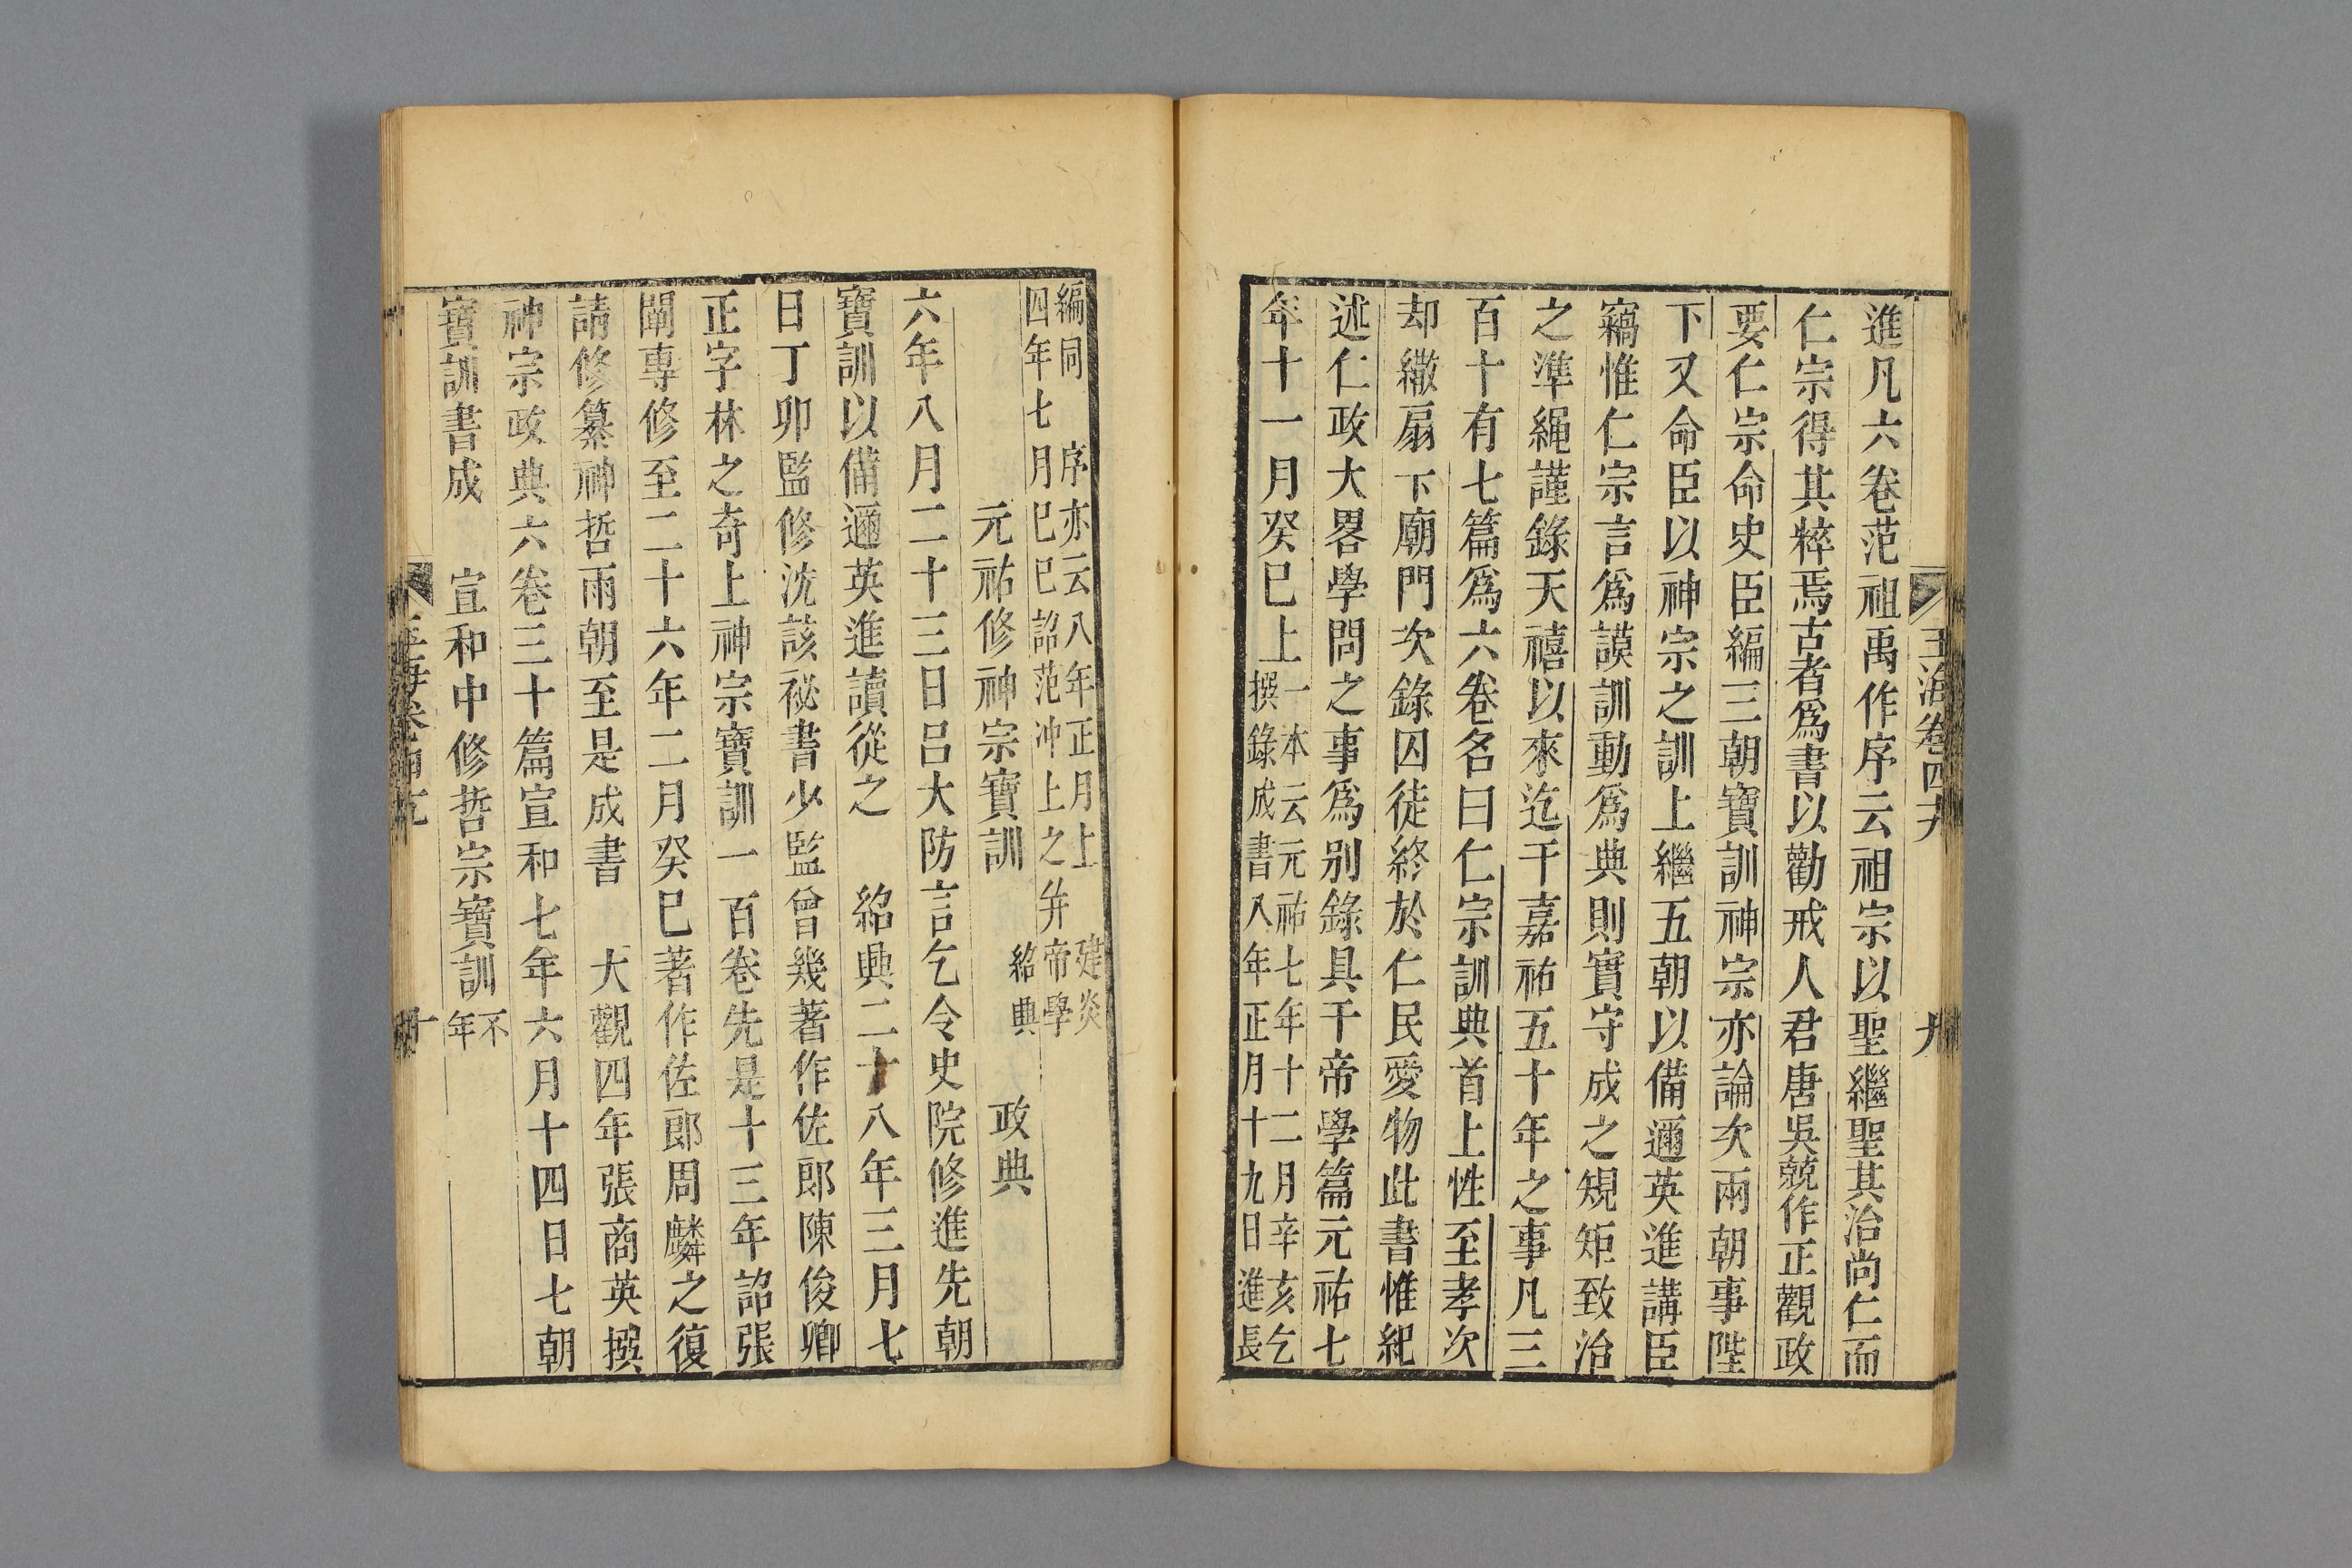 玉海卷四九 九
進凡六卷范祖禹作序云祖宗以聖繼聖其治尚仁而
仁宗得其粹焉古者為書以勸戒人君唐吳兢作正觀政
要仁宗命史臣編三朝寶訓神宗亦論次兩朝事陛
下又命臣以神宗之訓上繼五朝以備邇英進講臣
竊惟仁宗言為謨訓動為典則實守成之規矩致治
之準繩謹錄天禧以來迄于嘉祐五十年之事凡三
百十有七篇為六卷名曰仁宗訓典首上性至孝次
却繖扇下廟門次錄囚徒終於仁民愛物此書惟紀
述仁政大畧學問之事為別錄具于帝學篇元祐七
年十一月癸巳上一本云元祐七年十二月辛亥乞
撰錄成書八年正月十九日進長
編同 序亦云八年正月上 建炎
四年七月已巳詔范冲上之并帝學
元祐修神宗寶訓 紹興 政典
六年八月二十三日呂大防言乞令史院修進先朝
寶訓以備邇英進讀從之 紹興二十八年三月七
日丁卯監修沈該祕書少監曾幾著作佐郎陳俊卿
正字林之奇上神宗寶訓一百卷先是十三年詔張
闡專修至二十六年二月癸巳著作佐郎周麟之復
請修纂神哲兩朝至是成書 大觀四年張商英撰
神宗政典六卷三十篇宣和七年六月十四日七朝
寶訓書成 宣和中修哲宗寶訓不
年
十